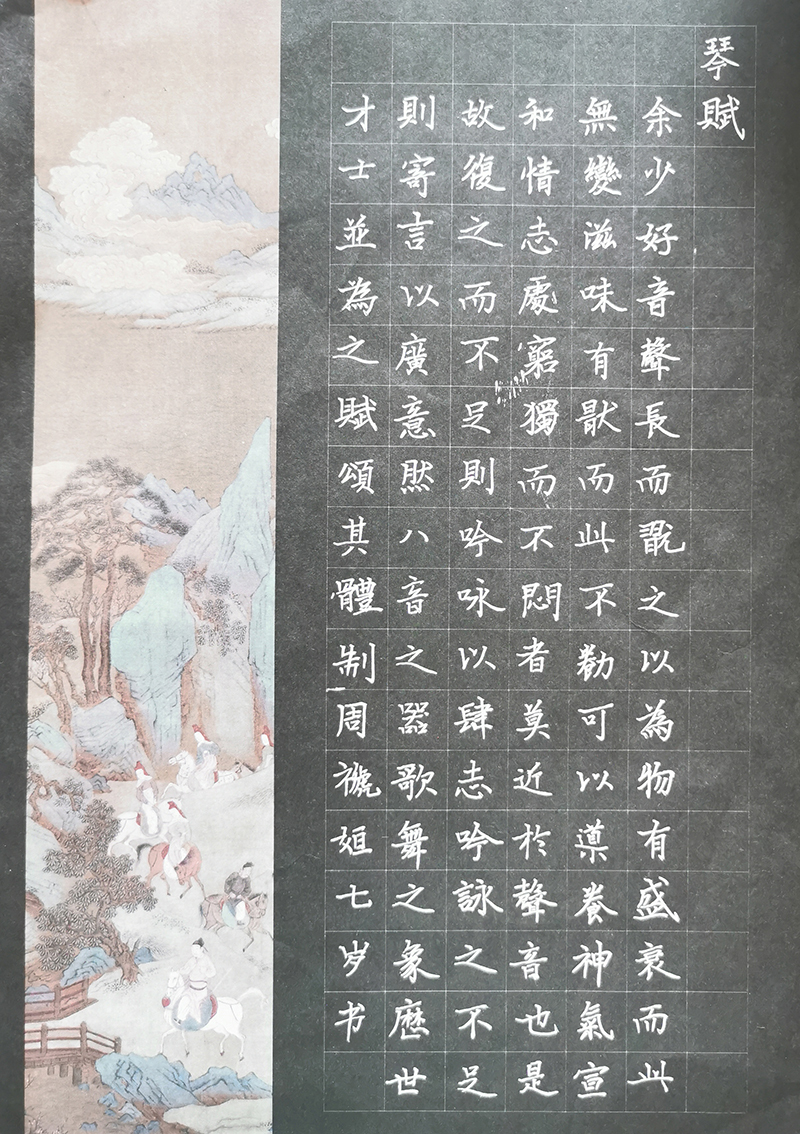 琴賦
余少好音聲長而翫之以為物有盛衰而此
無變滋味有猒而此不勌可以導養神氣宣
和情志處窮獨而不悶者莫近於聲音也是
故復之而不足則吟咏以肆志吟詠之不足
則寄言以廣意然八音之器歌舞之象歷世
才士並為之賦頌其體制周禠姮七岁书